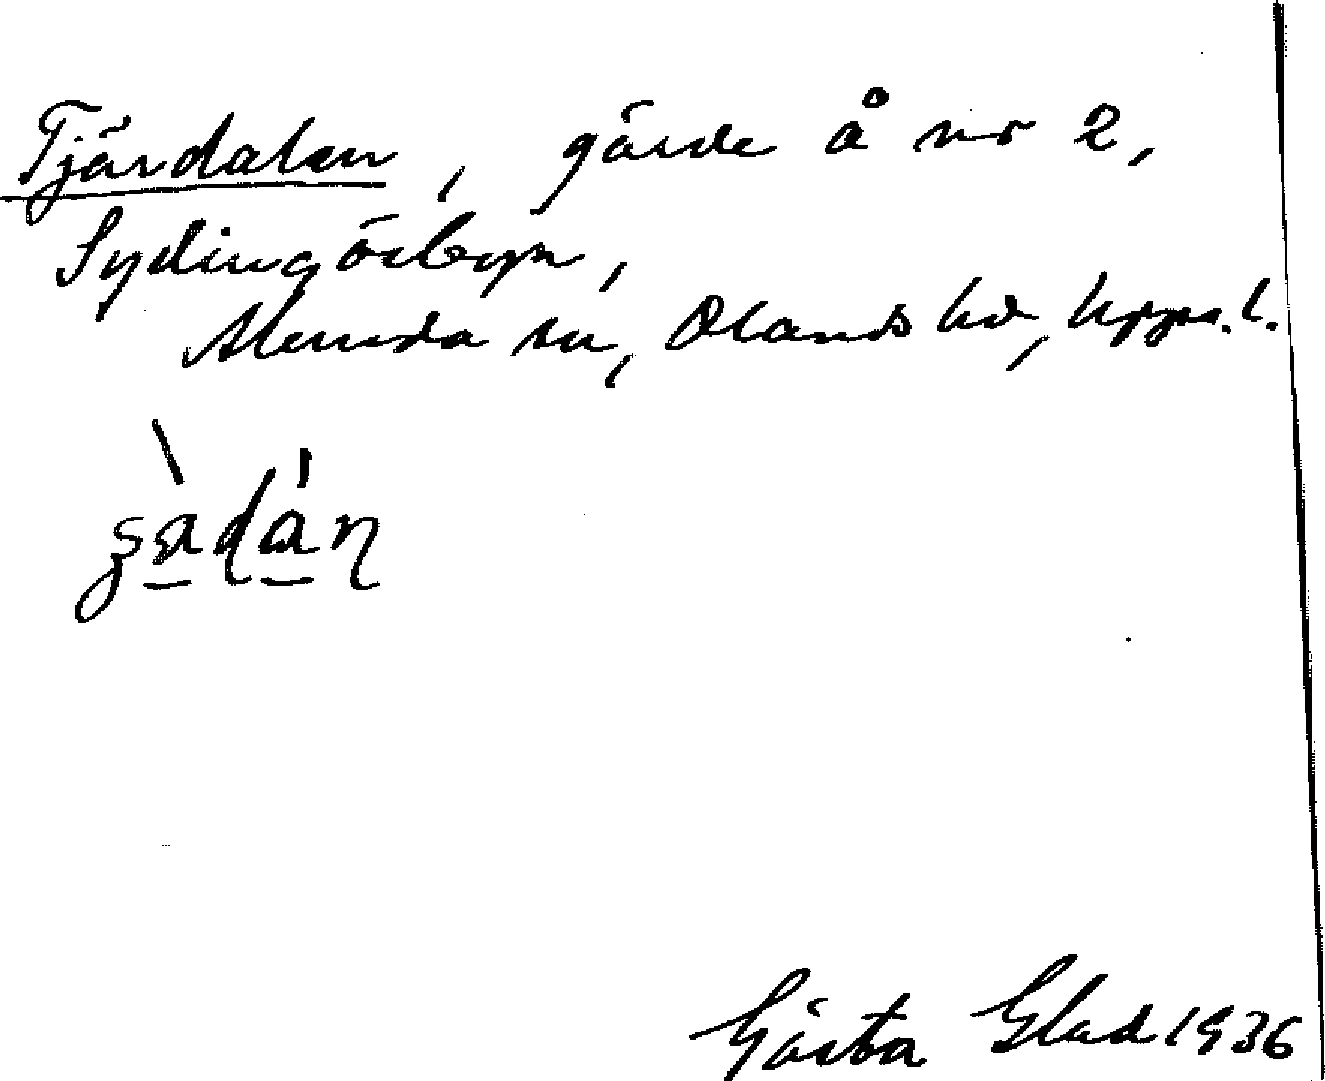 Tjärdalen, gärde å nr 2,
Sydingösbyn,
Alunda sn, Olands hd, Upps. l.
Gösta Glad 1936